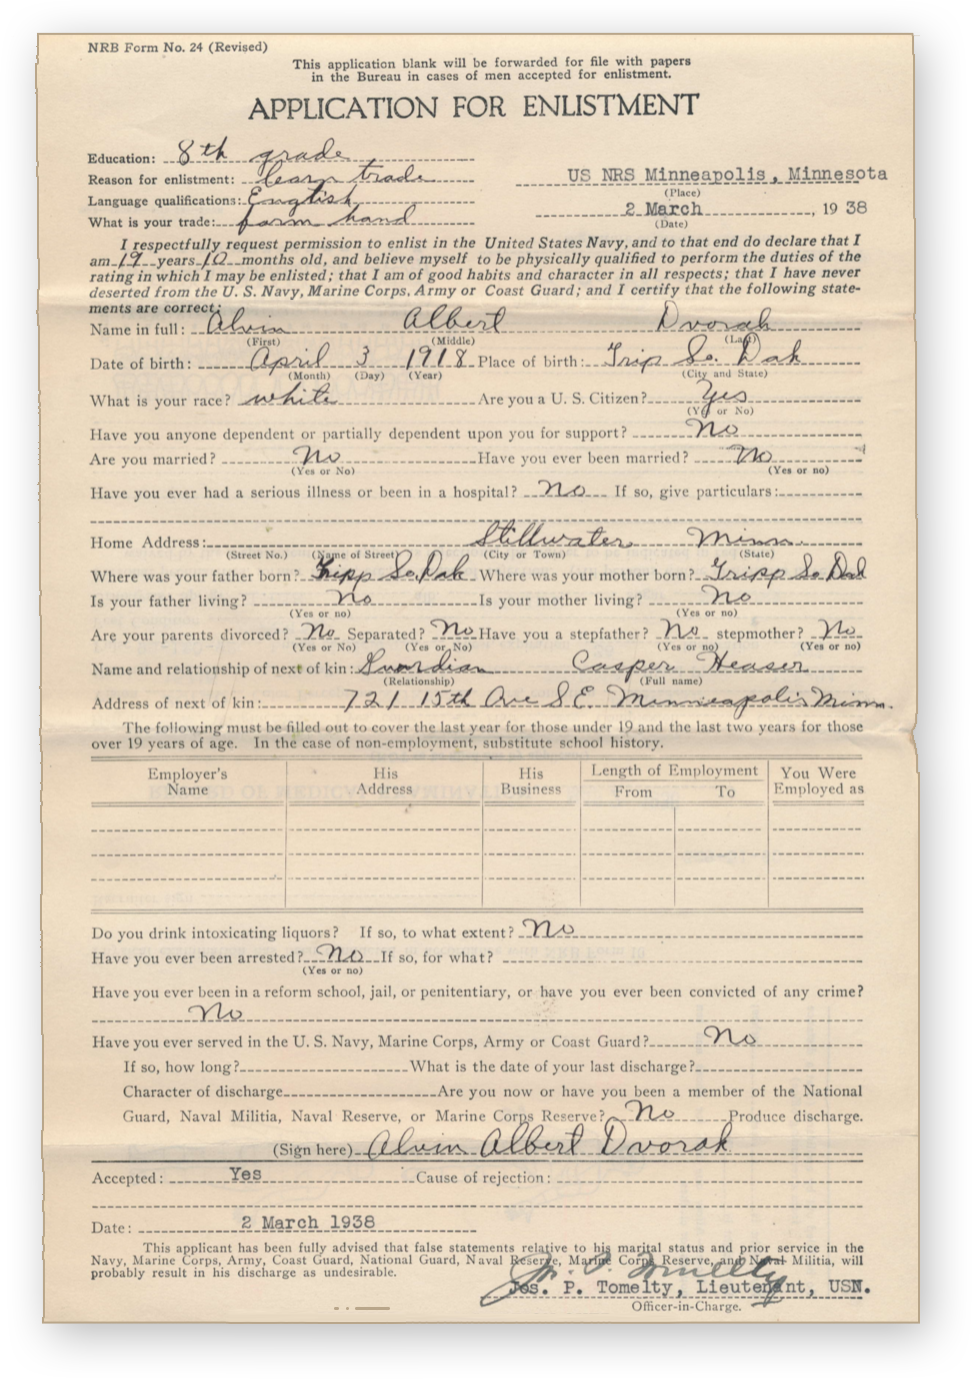 NRB Form No. 24 (Revised)
This application blank will be forwarded for file with papers
in the Bureau in cases of men accepted for enlistment.
APPLICATION FOR ENLISTMENT
Education: 8th grade
Reason for enlistment: learn trade
US NRS Minneapolis, Minnesota
(Place)
Language qualifications: English
2 March, 1938
What is your trade: farm hand
(Date)
I respectfully request permission to enlist in the United States Navy, and to that end do declare that I
am 19 years 10 months old, and believe myself to be physically qualified to perform the duties of the
rating in which I may be enlisted; that I am of good habits and character in all respects; that I have never
deserted from the U. S. Navy, Marine Corps, Army or Coast Guard; and I certify that the following state-
ments are correct:
Name in full: Alvin Albert Dvorak
(First) (Middle) (Last)
Date of birth: April 3 1918 Place of birth: Trip So. Dak
(Month) (Day) (Year) (City and State)
What is your race? white Are you a U. S. Citizen? Yes
(Yes or No)
Have you anyone dependent or partially dependent upon you for support? No
Are you married? No Have you ever been married? No
(Yes or No) (Yes or no)
Have you ever had a serious illness or been in a hospital? No If so, give particulars:
Home Address: Stillwater Minn.
(Street No.) (Name of Street) (City or Town) (State)
Where was your father born? Tripp So. Dak Where was your mother born? Tripp So. Dak
Is your father living? No Is your mother living? No
(Yes or no) (Yes or no)
Are your parents divorced? No Separated? No Have you a stepfather? No stepmother? No
(Yes or No) (Yes or No) (Yes or no) (Yes or no)
Name and relationship of next of kin: Guardian Casper Heaser
(Relationship) (Full name)
Address of next of kin: 721 15th Ave S E. Minneapolis Minn.
The following must be filled out to cover the last year for those under 19 and the last two years for those
over 19 years of age. In the case of non-employment, substitute school history.
Employer's Name His Address His Business Length of Employment From To You Were Employed as
Do you drink intoxicating liquors? If so, to what extent? No
Have you ever been arrested? No If so, for what?
(Yes or no)
Have you ever been in a reform school, jail, or penitentiary, or have you ever been convicted of any crime?
No
Have you ever served in the U. S. Navy, Marine Corps, Army or Coast Guard? No
If so, how long? What is the date of your last discharge?
Character of discharge Are you now or have you been a member of the National
Guard, Naval Militia, Naval Reserve, or Marine Corps Reserve? No Produce discharge.
(Sign here) Alvin Albert Dvorak
Accepted: Yes Cause of rejection:
Date: 2 March 1938
This applicant has been fully advised that false statements relative to his marital status and prior service in the
Navy, Marine Corps, Army, Coast Guard, National Guard, Naval Reserve, Marine Corps Reserve, and Naval Militia, will
probably result in his discharge as undesirable.
J. P. Tomelty
Jos. P. Tomelty, Lieutenant, USN.
Officer-in-Charge.